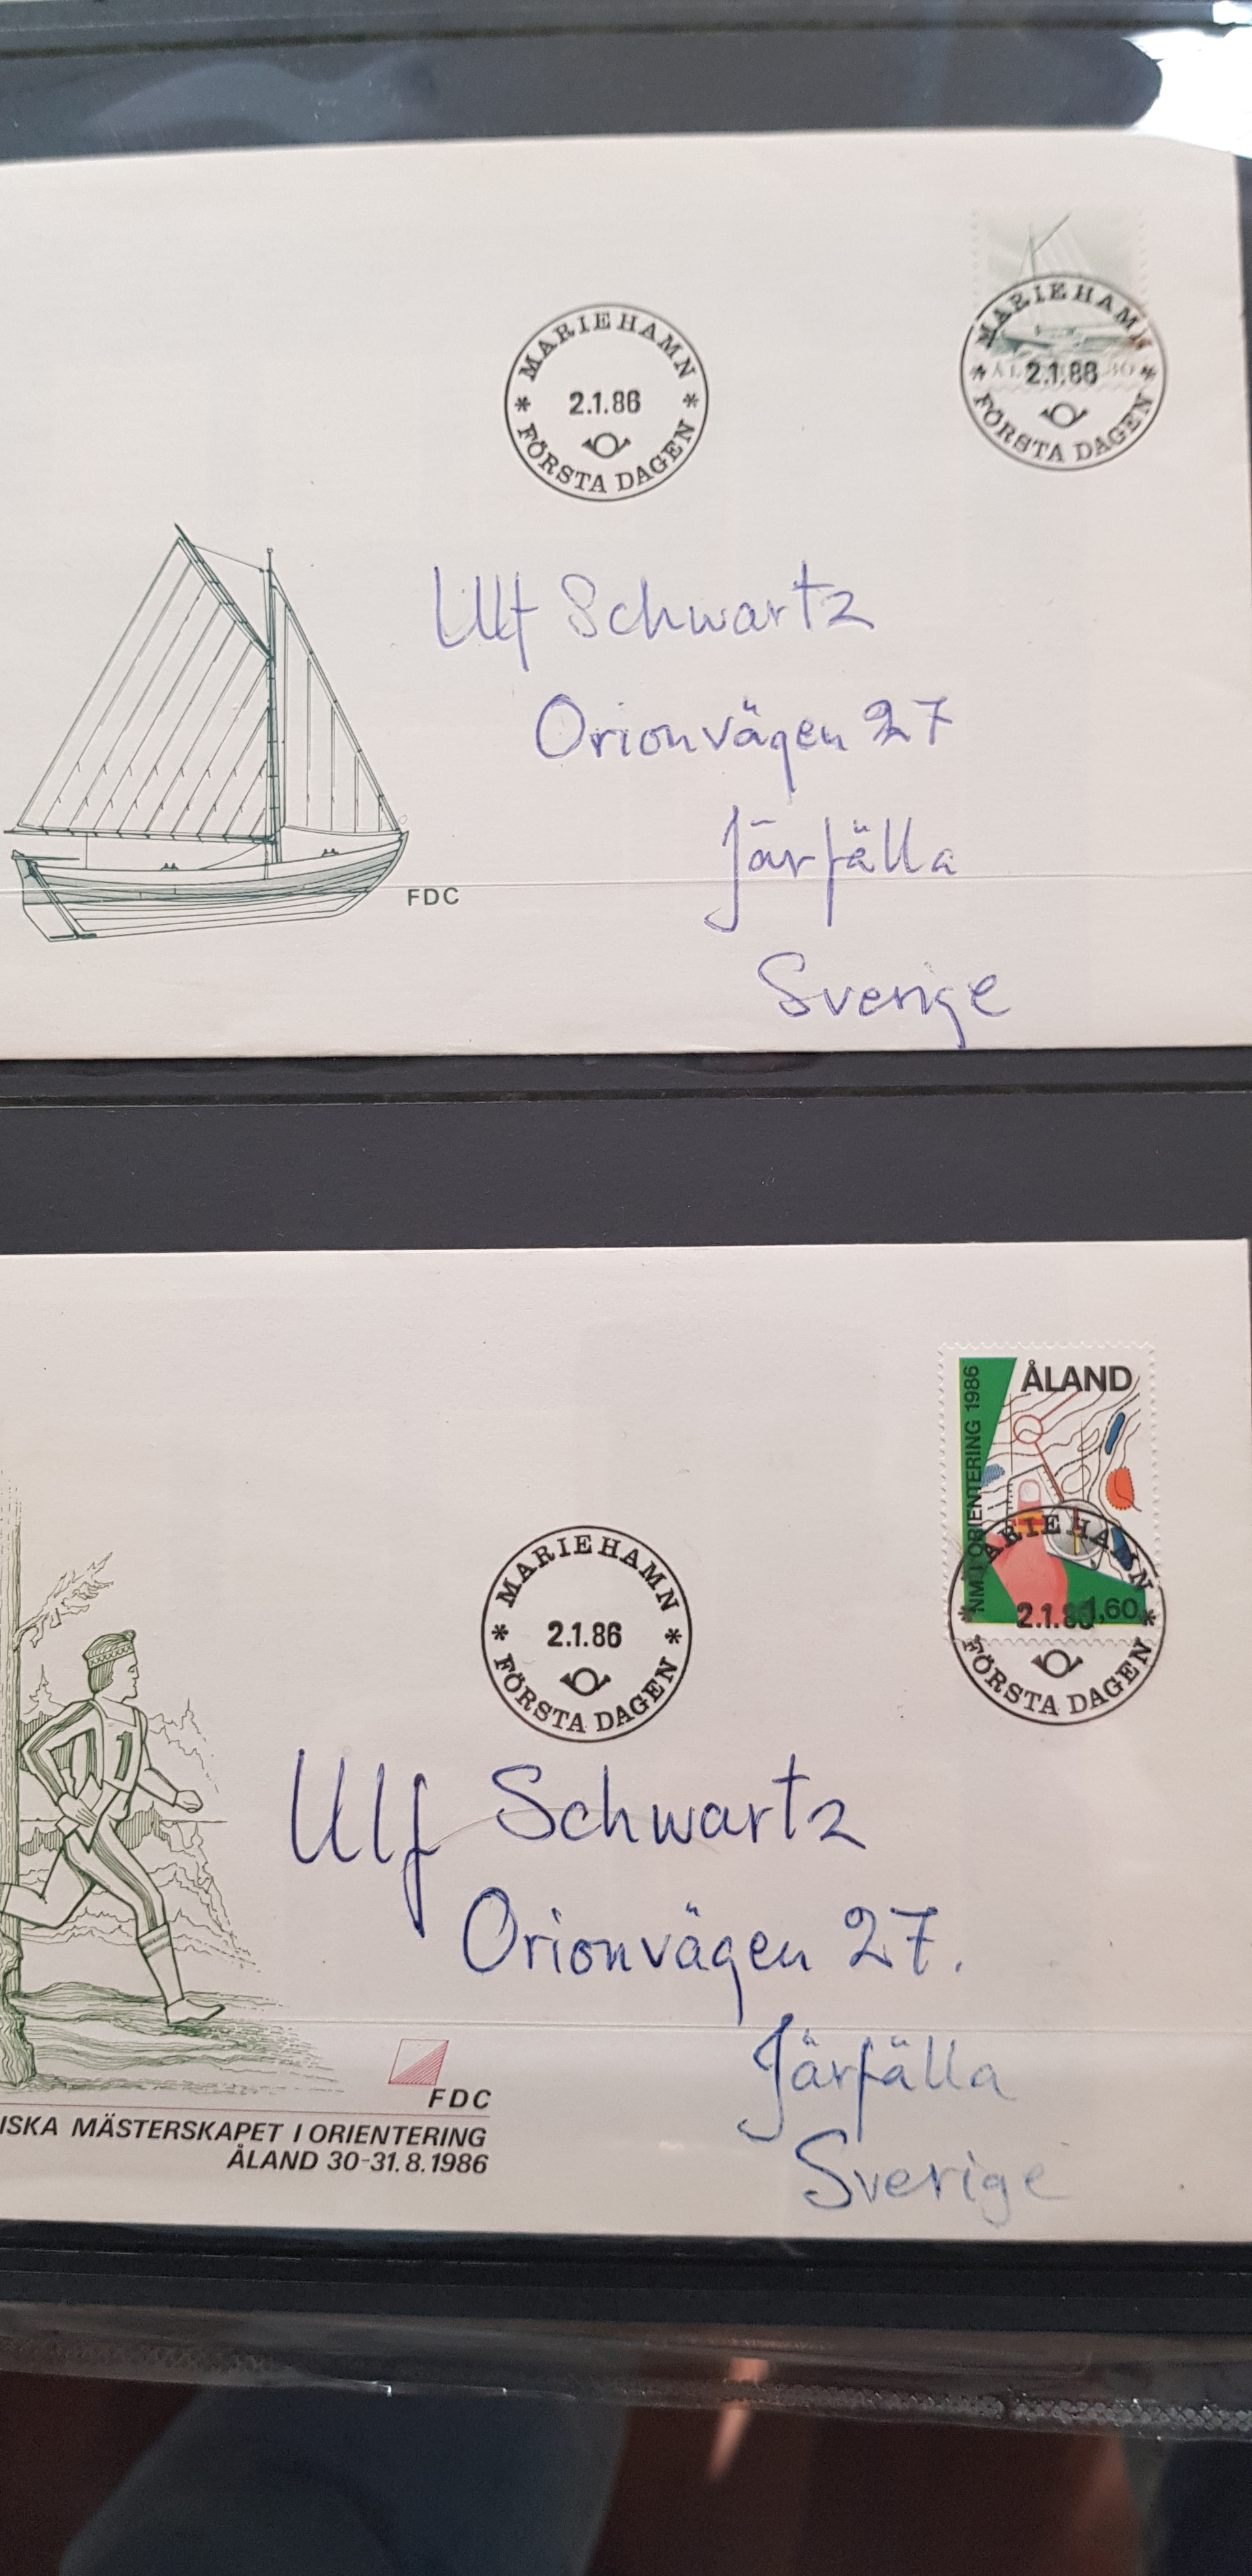 MARIEHAMN
2.1.86
FÖRSTA DAGEN
MARIEHAMN
2.1.86
FÖRSTA DAGEN
Ulf Schwartz
Orionvägen 27
Järfälla
FDC
Sverige
ÅLAND
NM I ORIENTERING 1986
1,60
MARIEHAMN
2.1.86
FÖRSTA DAGEN
MARIEHAMN
2.1.86
FÖRSTA DAGEN
1
Ulf Schwartz
Orionvägen 27.
Järfälla
Sverige
FDC
ISKA MÄSTERSKAPET I ORIENTERING
ÅLAND 30-31.8.1986